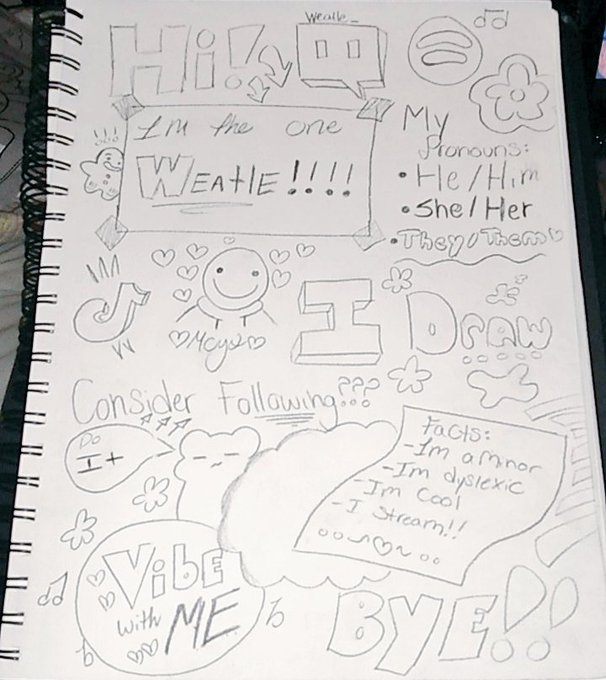 Hi!
Weatle_
I'm the one
WEAtlE!!!!
My
Pronouns:
• He/Him
• She/Her
• They/Them
I Draw
Consider Following???
Do
It
Facts:
-Im a minor
-Im dyslexic
-Im Cool
-I Stream!!
Vibe
with ME
BYE!!